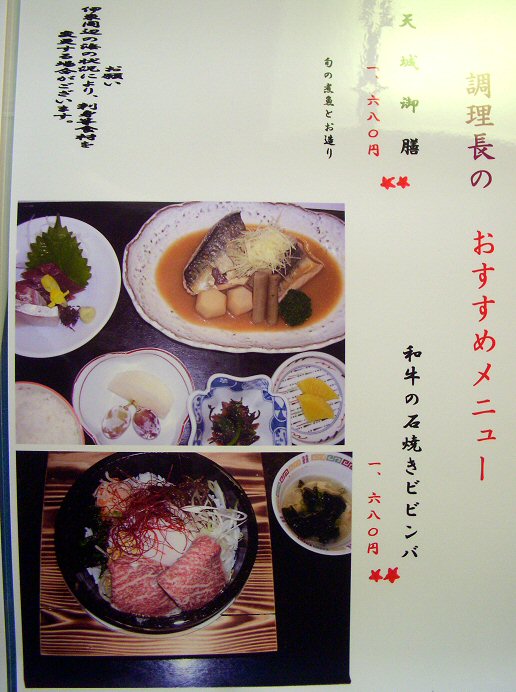 調理長の おすすめメニュー
天城御膳
一、六八〇円
旬の煮魚とお造り
和牛の石焼きビビンバ
一、六八〇円
お願い
伊東周辺の海の状況により、刺身等食材を
変更する場合がございます。